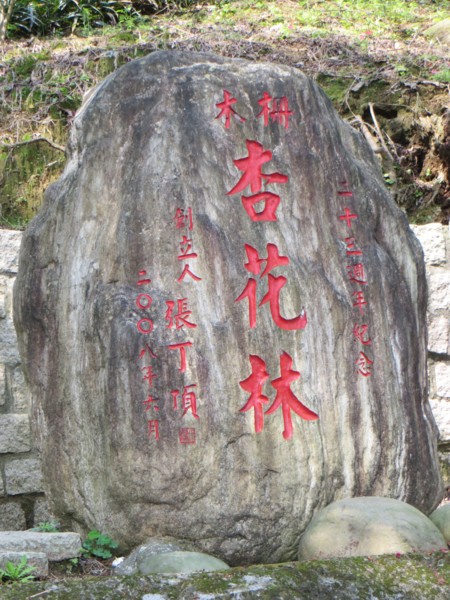 二十五週年紀念
木柵
杏花林
創立人 張丁頂
二〇〇八年六月